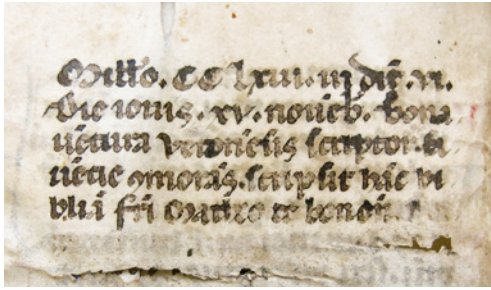 Millo. CC lxiii. in dit. vi.
Die iovis. xv. noueb. bona
uetura veronesis scriptor. ve
netie moras. scripsit hic bi
blia fri Matheo de bonon.